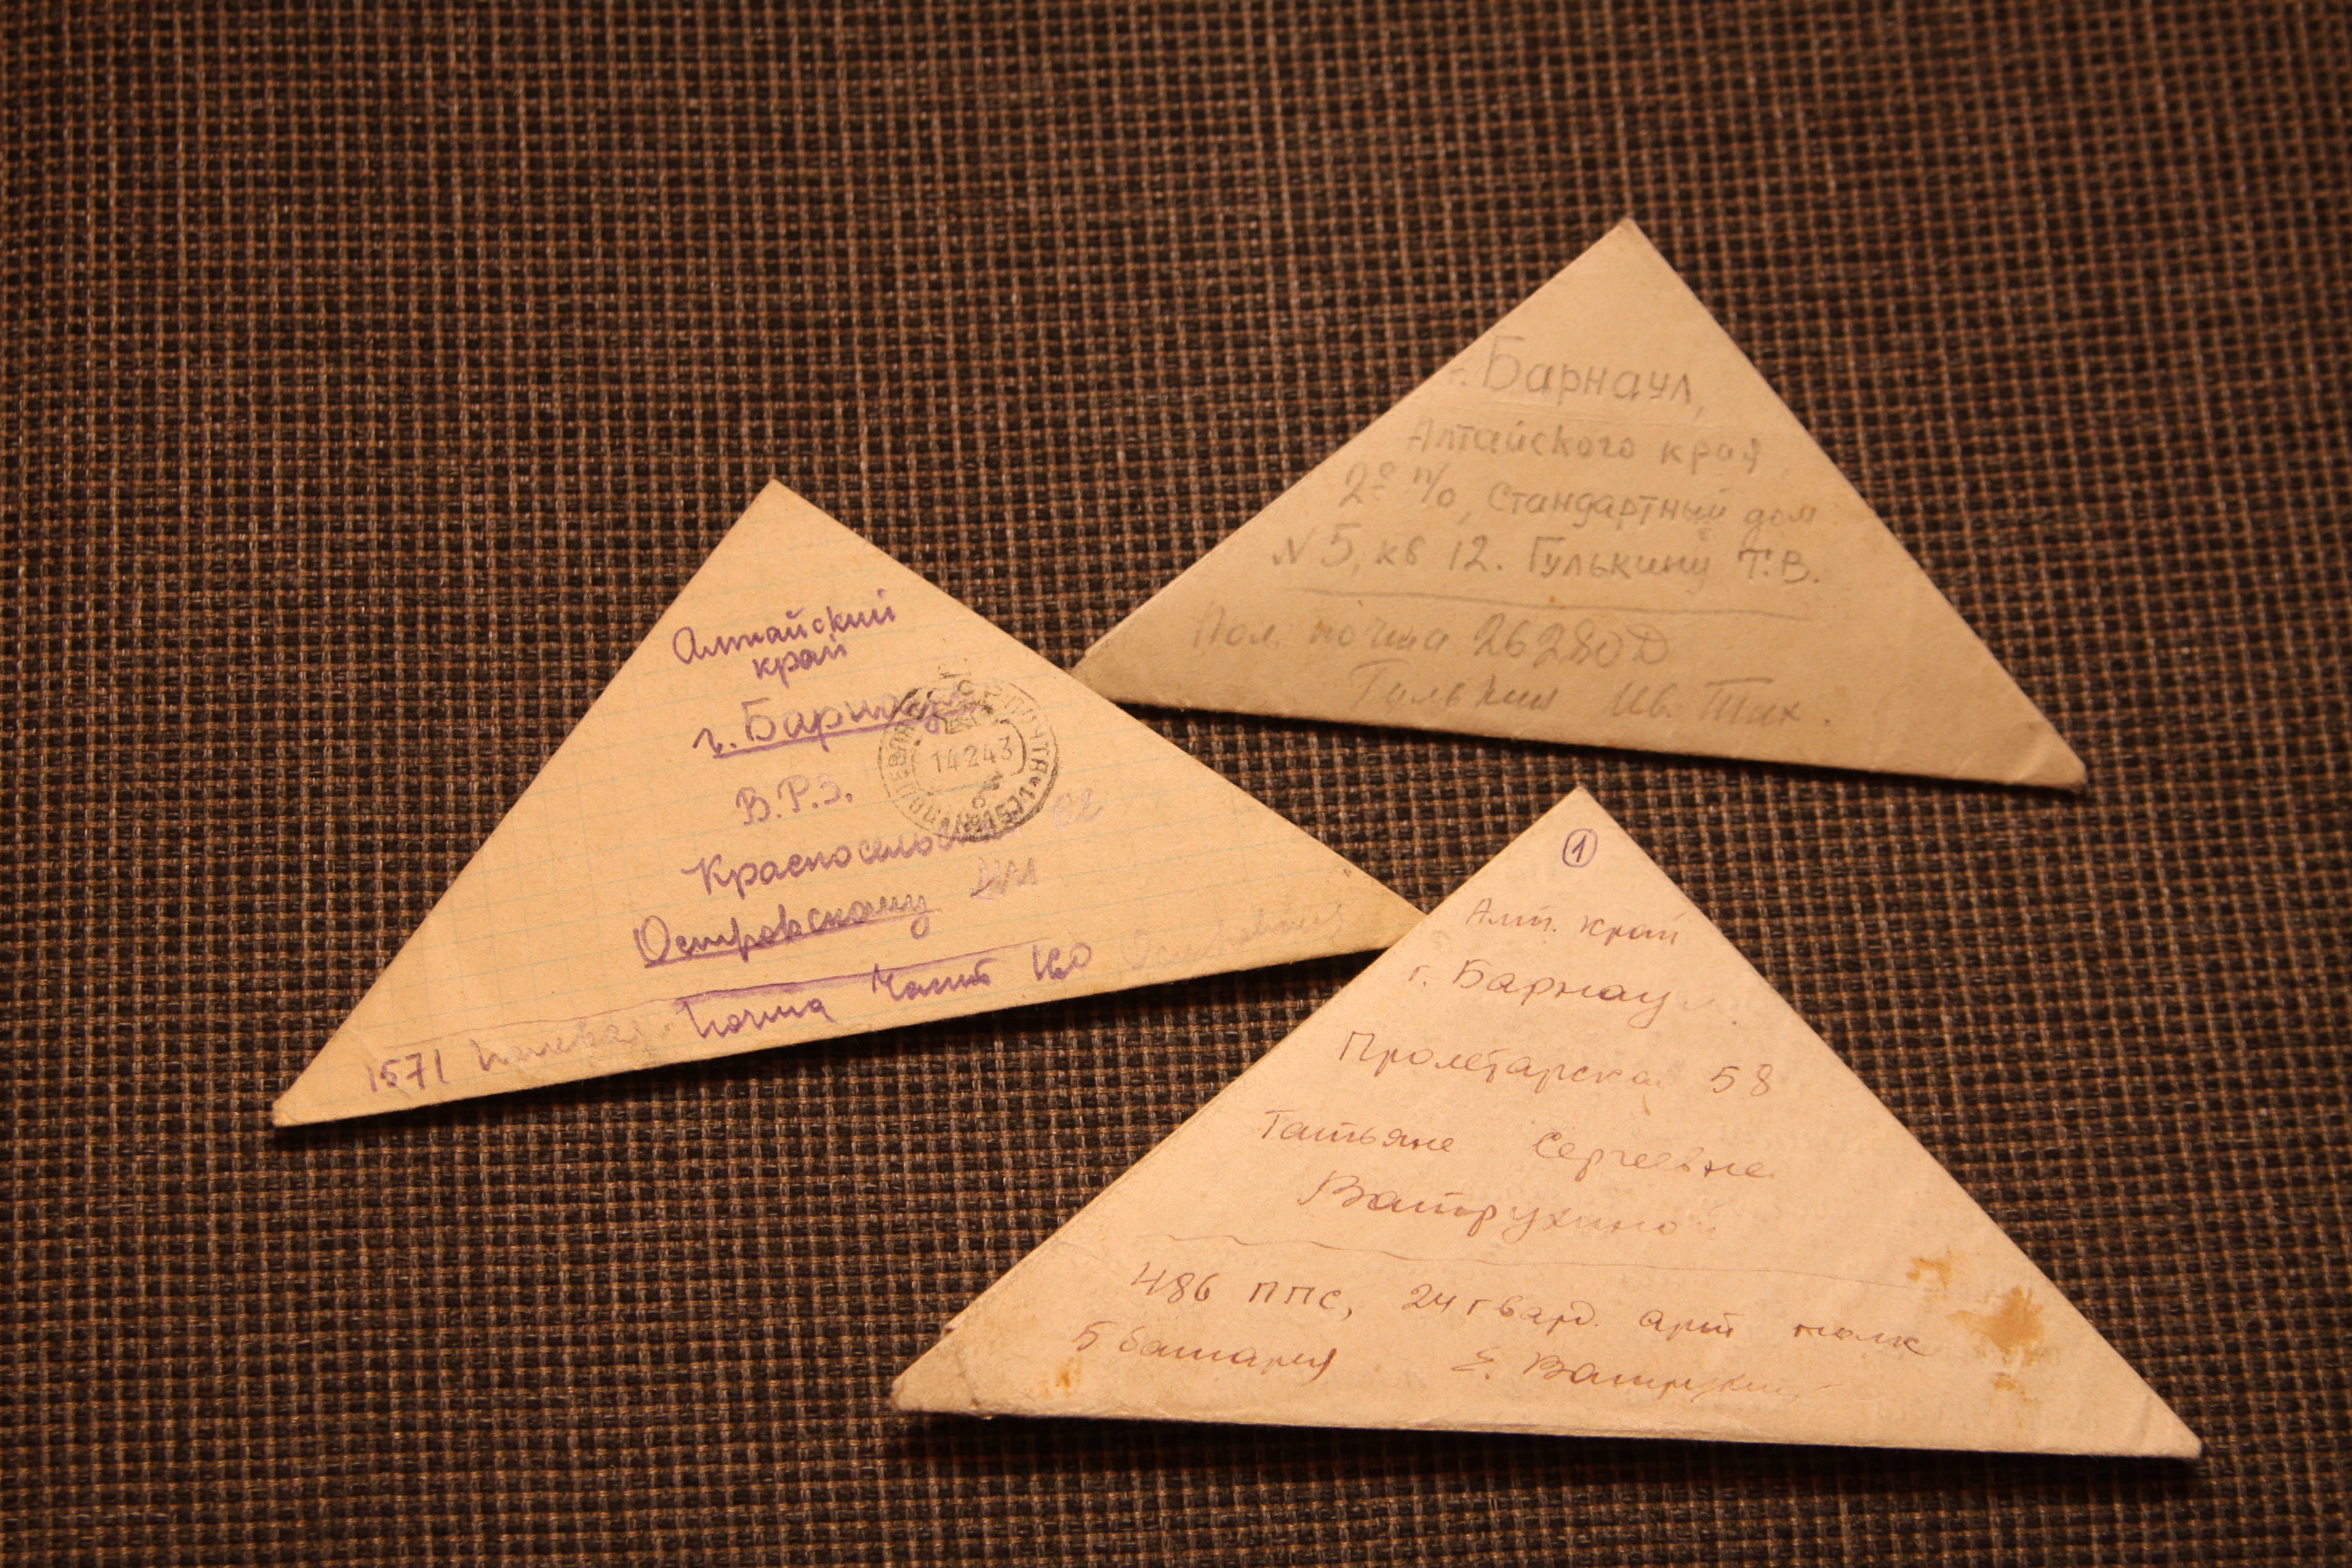 Алтайский
край
г. Барнаул
В.Р.З.
Красносельск
Островскому
1571 Полевая Почта Часть 160
ПОЛЕВАЯ ПОЧТА 1571
14 2 43
г. Барнаул,
Алтайского края
2е п/о, Стандартный дом
N 5, кв 12. Гулькину Т.В.
Пол. почта 26280 Д
Гулькин Ив. Тих.
1
Алт. край
г. Барнаул
Пролетарская 58
Татьяне Сергеевне
Ватрухиной
486 ППС, 24 гвард. арт полк
5 батарея Е. Ватрухин